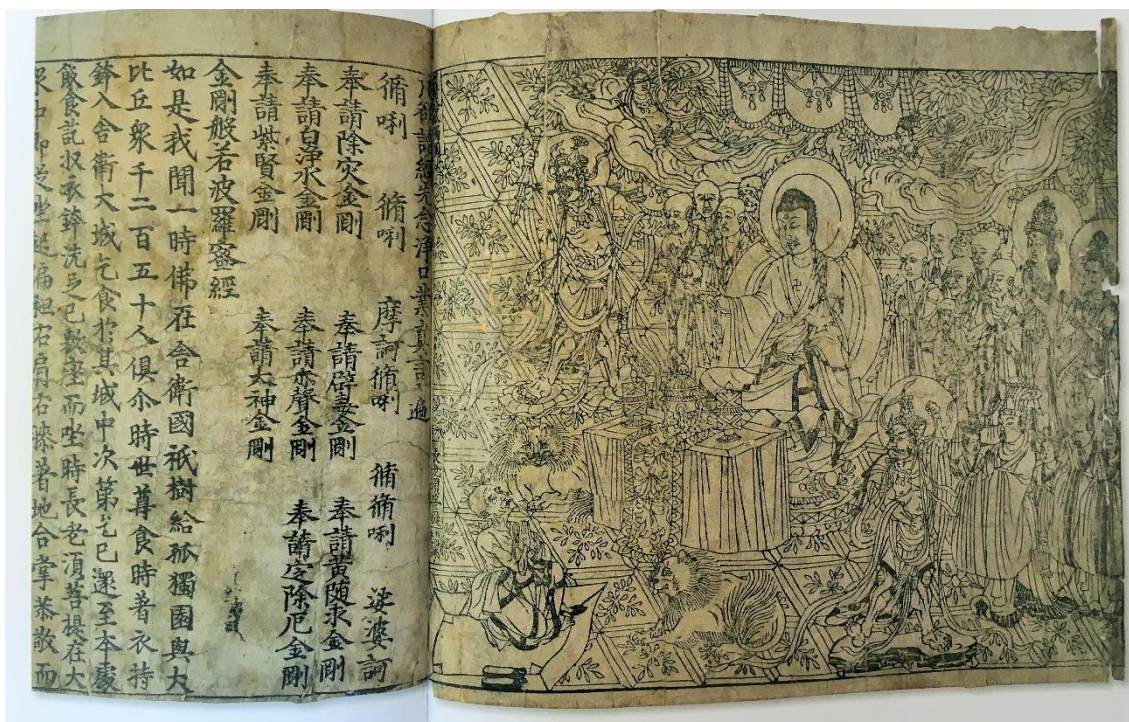 凡欲讀經先念淨口業真言一遍
脩唎 脩唎 摩訶脩唎 脩脩唎 娑婆訶
奉請除灾金剛 奉請辟毒金剛 奉請黃随求金剛
奉請白淨水金剛 奉請赤聲金剛 奉請定除厄金剛
奉請紫賢金剛 奉請大神金剛
金剛般若波羅蜜經
如是我聞一時佛在舍衛國祇樹給孤獨園與大
比丘衆千二百五十人俱尒時世尊食時著衣持
鉢入舍衛大城乞食於其城中次第乞已還至本處
飯食訖收衣鉢洗足已敷座而坐時長老須菩提在大
衆中即從坐起偏袒右肩右膝著地合掌恭敬而